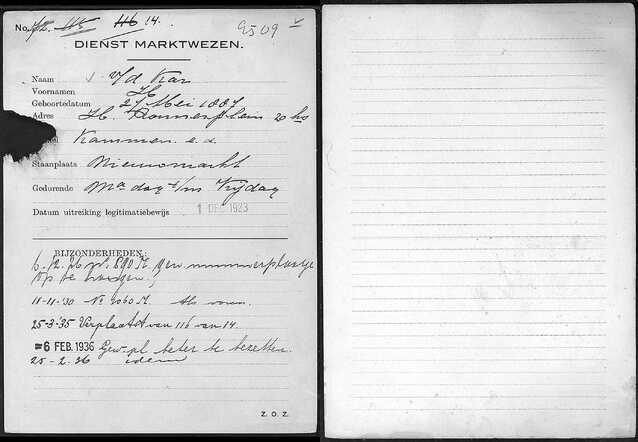 No. 72. 115 116 14. 9509 v
DIENST MARKTWEZEN.
Naam v/d Kar
Voornamen H
Geboortedatum 27 Mei 1887
Adres H. Ronnerplein 20 hs
Kammen e.d.
Staanplaats Nieuwmarkt
Gedurende Maandag t/m Vrijdag
Datum uitreiking legitimatiebewijs 1 DEC 1923
BIJZONDERHEDEN:
6.12.26 gew. nummerplaatje
op te hangen;
11-11-'30 No 2060 M. Als voren.
25-3-'35 Verplaatst van 116 van 14.
=6 FEB. 1936 Gew. pl. beter te bezetten.
25-2-36 idem
Z. O. Z.